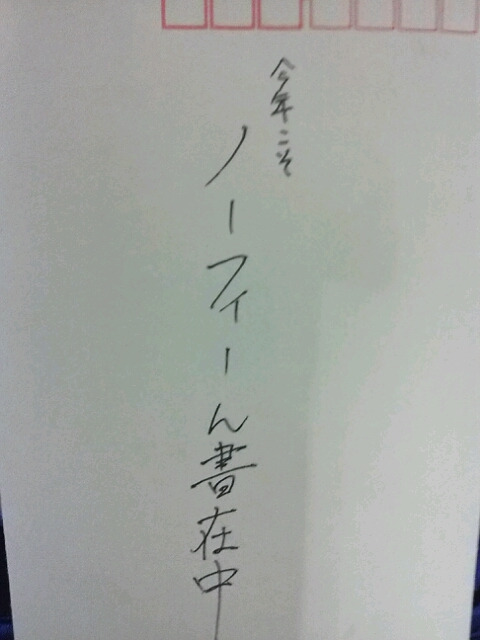 今年こそ
ノーフィーん書在中